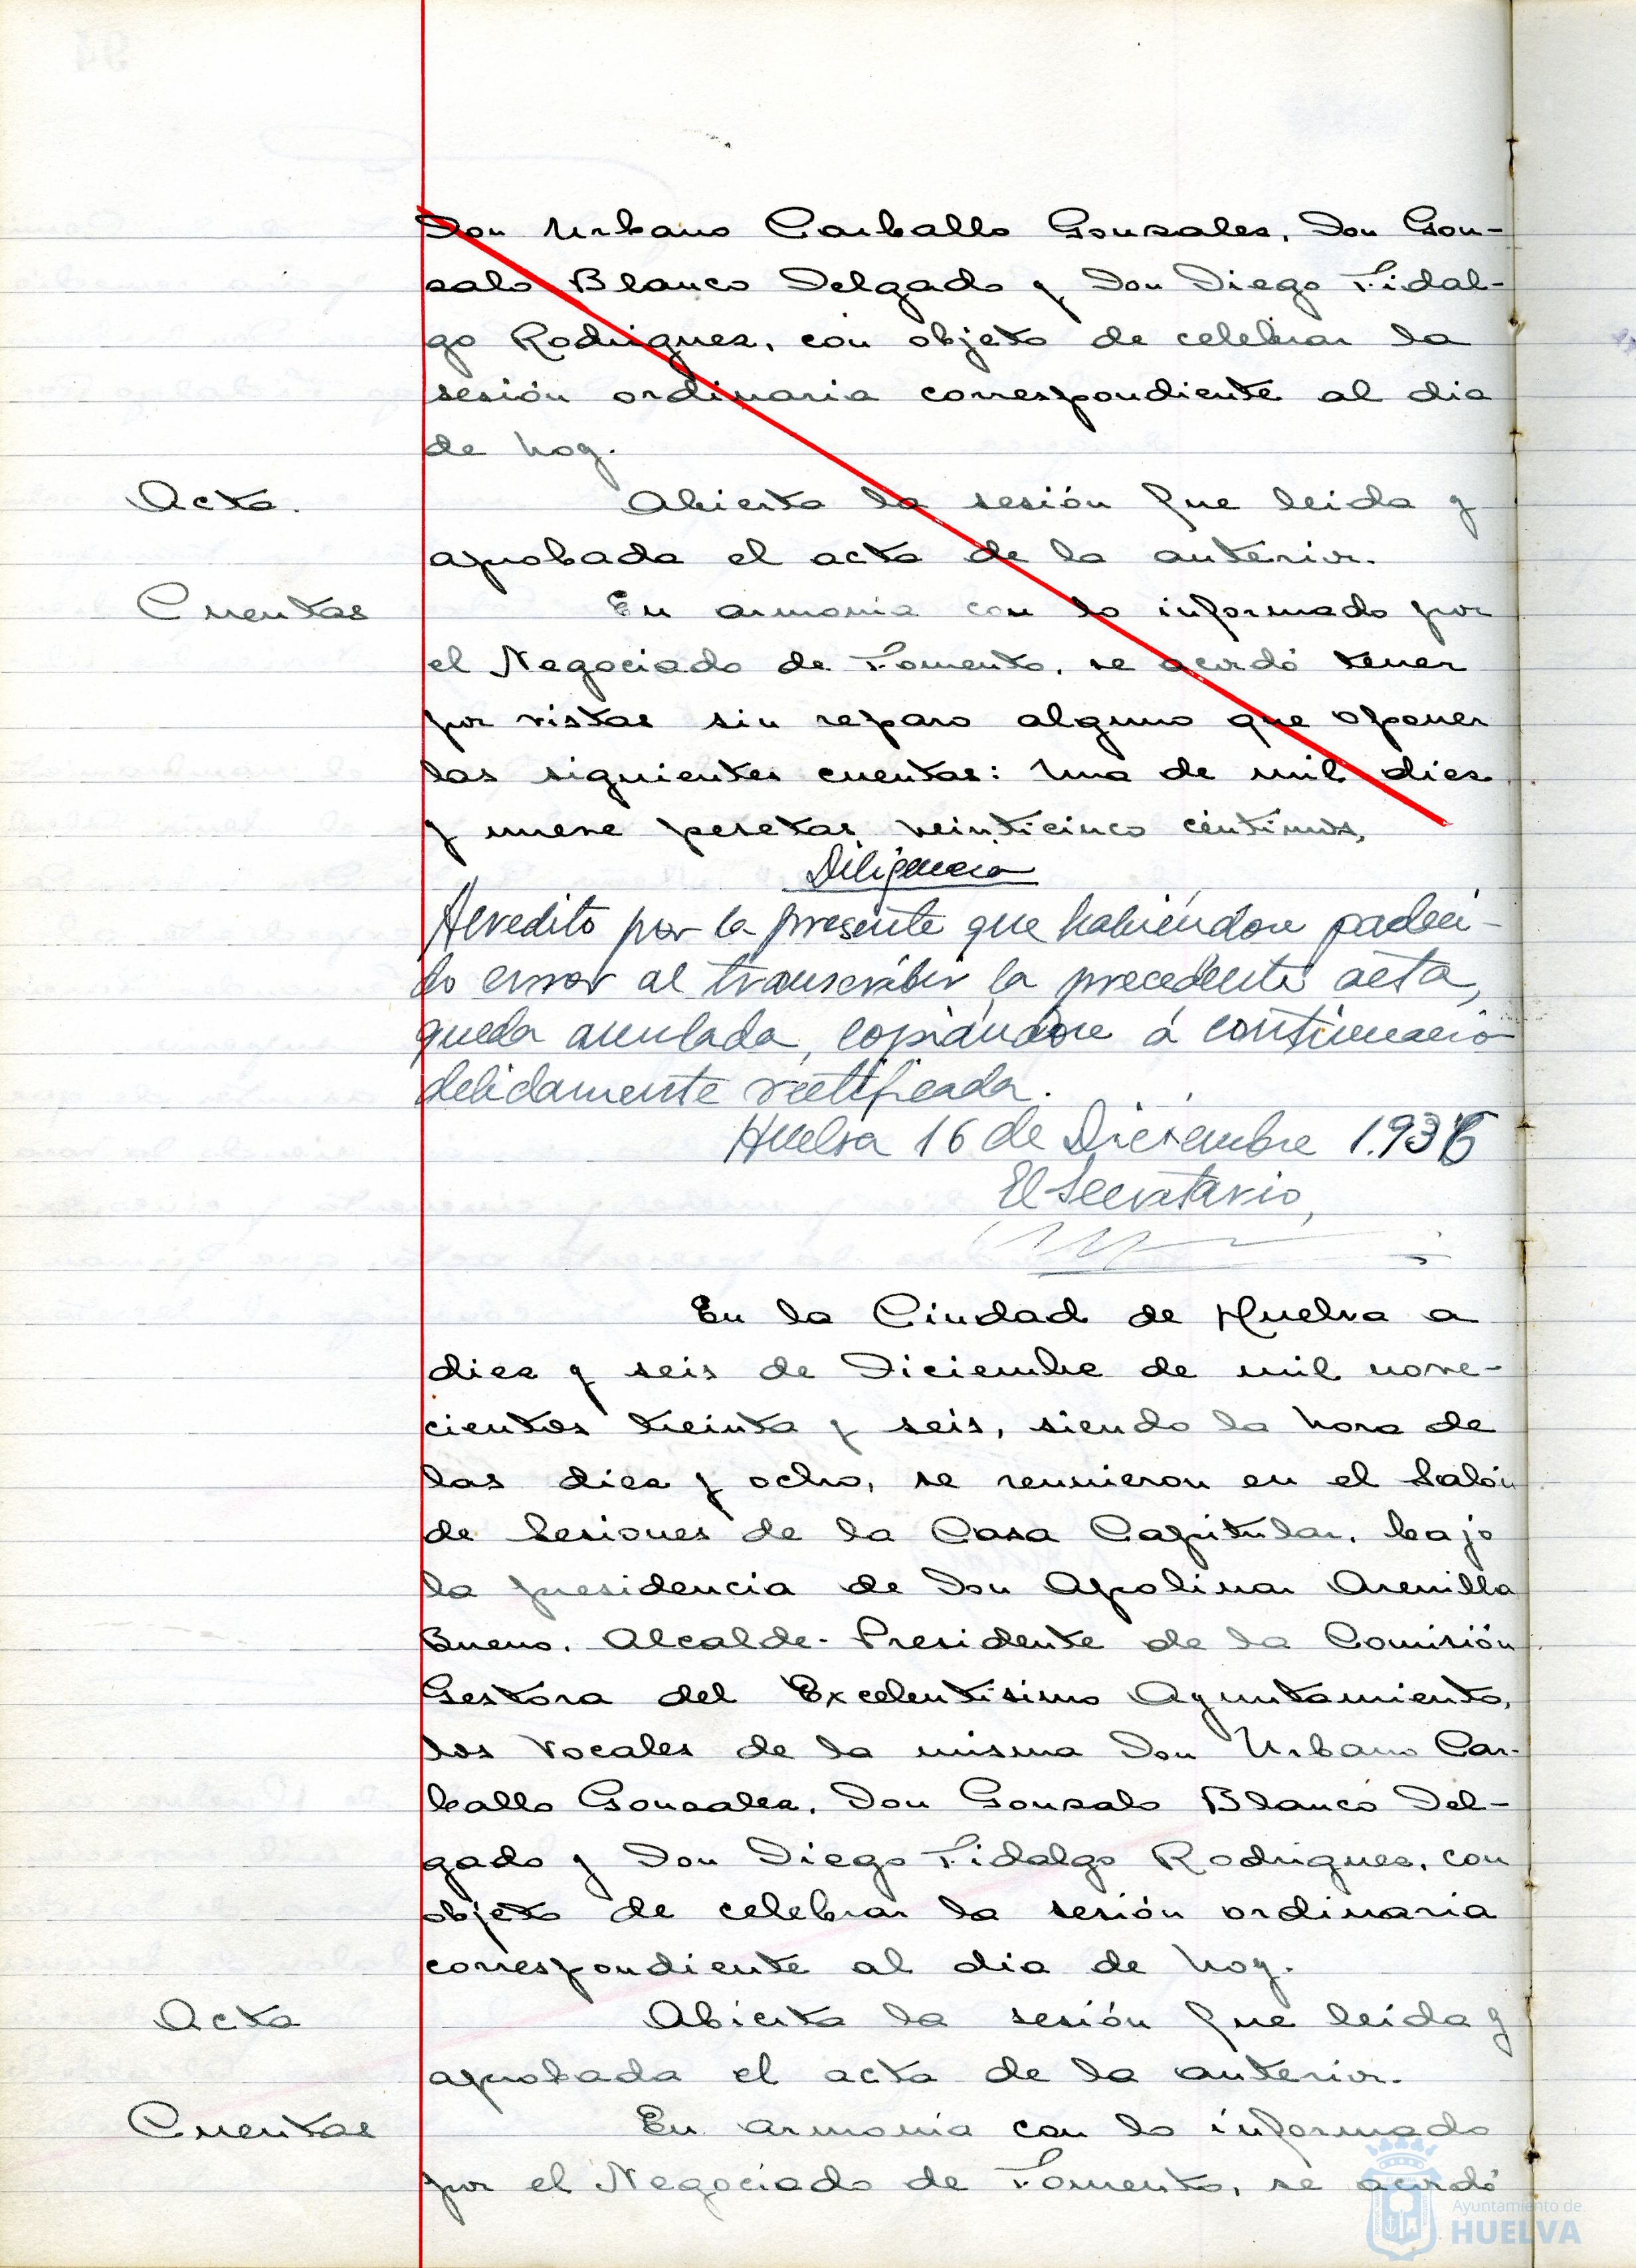 94
Don Urbano Carballo Gonzalez, Don Gon-
zalo Blanco Delgado y Don Diego Fidal-
go Rodriguez, con objeto de celebrar la
sesión ordinaria correspondiente al dia
de hoy.
Acta.
Abierta la sesión fue leida y
aprobada el acta de la anterior.
Cuentas
En armonia con lo informado por
el Negociado de Fomento, se acordó tener
por vistas sin reparo alguno que oponer
las siguientes cuentas: Una de mil diez
y nueve pesetas veinticinco céntimos,
Diligencia
Acredito por la presente que habiéndose padeci-
do error al transcribir la precedente acta,
queda anulada, copiándose á continuacio
debidamente rectificada.
Huelva 16 de Diciembre 1.936
El Secretario,
En la Ciudad de Huelva a
diez y seis de Diciembre de mil nove-
cientos treinta y seis, siendo la hora de
las diez y ocho, se reunieron en el Salón
de Sesiones de la Casa Capitular, bajo
la presidencia de Don Apolinar Arenilla
Bueno, Alcalde-Presidente de la Comisión
Gestora del Excelentísimo Ayuntamiento,
los Vocales de la misma Don Urbano Car-
ballo Gonzalez, Don Gonzalo Blanco Del-
gado y Don Diego Fidalgo Rodriguez, con
objeto de celebrar la sesión ordinaria
correspondiente al dia de hoy.
Acta
Abierta la sesión fue leida y
aprobada el acta de la anterior.
Cuentas
En armonía con lo informado
por el Negociado de Fomento, se acordó
Ayuntamiento de
HUELVA